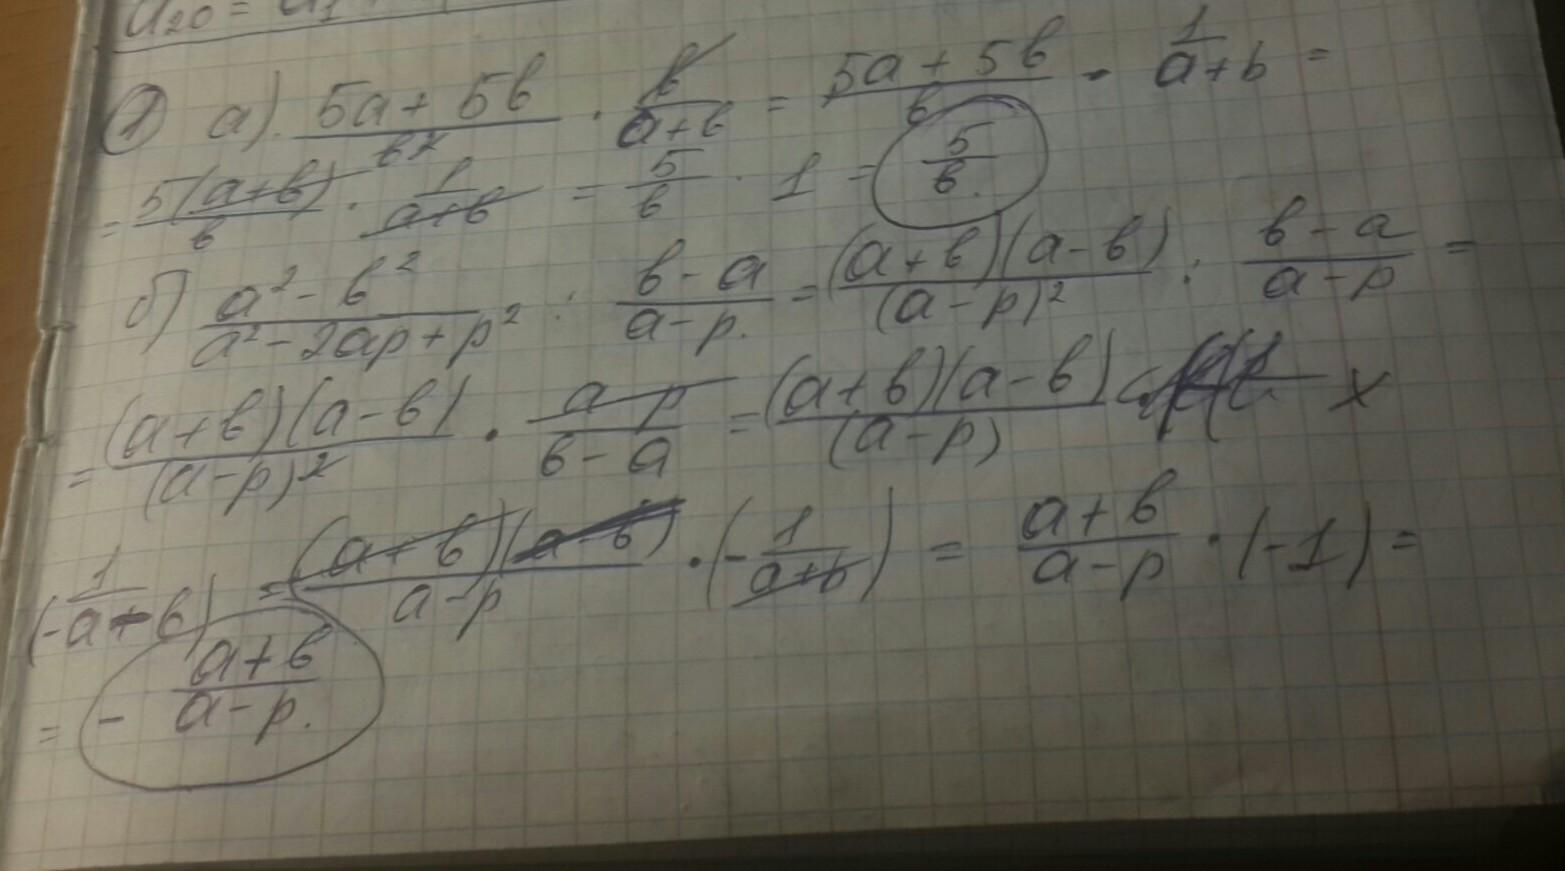 a₂₀ = a₁
① а) (5a + 5b)/b² · b/(a+b) = (5a + 5b)/b · 1/(a+b) =
= 5(a+b)/b · 1/(a+b) = 5/b · 1 = 5/b.
б) (a² - b²)/(a² - 2ap + p²) : (b - a)/(a - p.) = (a+b)(a-b)/(a-p)² : (b - a)/(a - p) =
= (a+b)(a-b)/(a-p)² · (a - p)/(b - a) = (a+b)(a-b)/(a-p) ×
(-1/(a-b)) = (a+b)(a-b)/(a-p) · (-1/(a+b)) = (a+b)/(a-p) · (-1) =
= - (a+b)/(a-p.)